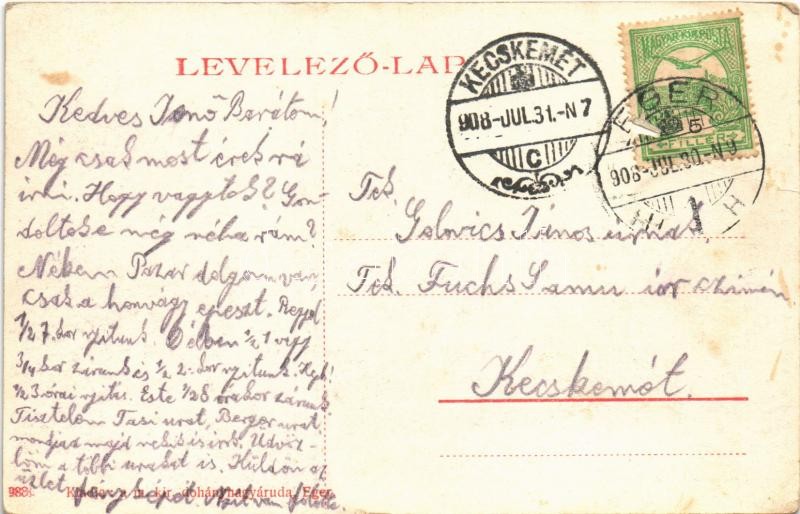 LEVELEZŐ-LAP
MAGYAR KIR. POSTA
FILLÉR
KECSKEMÉT
908-JUL.31.-N7
C
EGER
5
908-JUL.30.-N9
H
Kedves Jenő Barátom!
Még csak most érek rá
írni. Hogy vagytok? Gon-
doltok-e még néha rám?
Nékem Pazar dolgom van
csak a honvágy epeszt. Reggel
1/2 7. kor nyitunk. Délben 1/2 1 vagy
3/4 kor zárunk és 1/2 2-kor nyitunk.
1/2 3 órai nyitás. Este 1/2 8 órakor zárunk
Tisztelem Tasi urat, Berger urat
mondjad majd nekik is írok. Üdvöz-
löm a többi urakat is. Küldöm az
üzlet fényképét.
Tek.
Golovics János úrnak
Tek. Fuchs Samu úr címén
Kecskemét.
Kiadja: a m. kir. dohánynagyáruda, Eger.